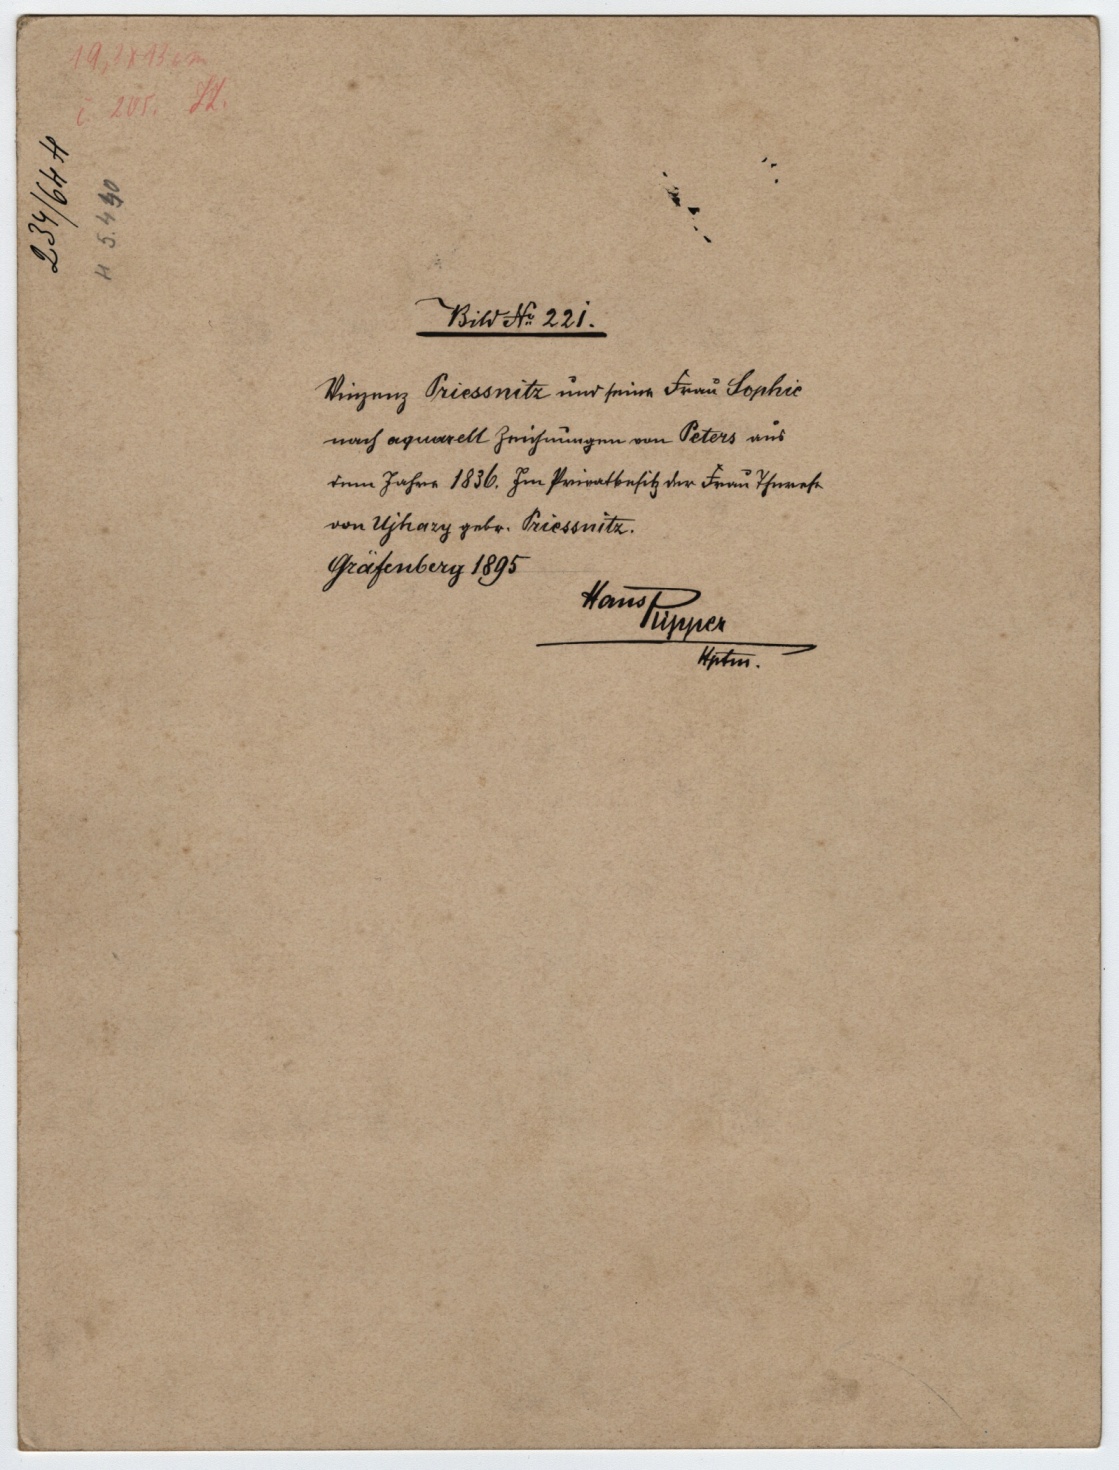 19,2x13 cm
234/64 H
H 5.490
Bild No 221.
Vinzenz Priessnitz und seine Frau Sophie
nach aquarell Zeichnungen von Peters aus
dem Jahre 1836. Im Privatbesitz der Frau Therese
von Ujhazy gebr. Priessnitz.
Gräfenberg 1895
Hans
Ripper
Hptm.